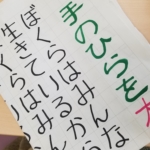 手のひらを
ぼくらはみんな
生きている
ぼくらはみん